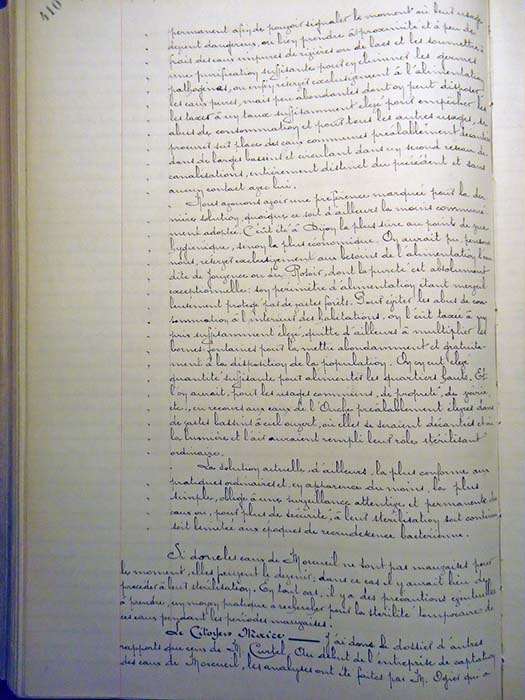 410
permanent afin de pouvoir signaler le moment où leur usage
devient dangereux, ou bien prendre à proximité et à peu de
frais des eaux impures de rivières ou de lacs et les soumettre à
une purification suffisante pour en éliminer les germes
pathogènes, ou enfin réserver exclusivement à l'alimentation
les eaux pures, mais peu abondantes dont on peut disposer
les taxer à un taux suffisamment élevé pour empêcher les
abus de consommation et pour tous les autres usages, se
procurer sur place des eaux communes préalablement décantées
dans de larges bassins et circulant dans un second réseau de
canalisations, entièrement distinct du précédent et sans
aucun contact avec lui.
Nous avouons avoir une préférence marquée pour la der-
nière solution, quoique ce soit d'ailleurs la moins commune-
ment adoptée. C'eût été à Dijon la plus sûre au point de vue
hygiénique, sinon la plus économique. On aurait pu, pensons
nous, réserver exclusivement aux besoins de l'alimentation l'eau
dite de Jouvence ou du Rosoir, dont la pureté est absolument
exceptionnelle: son périmètre d'alimentation étant merveil-
leusement protégé par de vastes forêts. Pour éviter les abus de con-
sommation à l'intérieur des habitations, on l'eût taxée à un
prix suffisamment élevé, quitte d'ailleurs à multiplier les
bornes-fontaines pour la mettre abondamment et gratuite-
ment à la disposition de la population. On en eut élevé
quantité suffisante pour alimenter les quartiers hauts. Et
l'on aurait, pour les usages communs, de propreté, de voirie
etc., eu recours aux eaux de l'Ouche préalablement élevées dans
de vastes bassins à ciel ouvert, où elles se seraient décantées et où
la lumière et l'air auraient rempli leur rôle stérilisant
ordinaire.
La solution actuelle, d'ailleurs, la plus conforme aux
pratiques ordinaires et, en apparence du moins, la plus
simple, oblige à une surveillance attentive et permanente des
eaux ou, pour plus de sécurité, à leur stérilisation soit continue
soit limitée aux époques de recrudescence bactérienne.
Si donc les eaux de Morcueil ne sont pas mauvaises pour
le moment, elles peuvent le devenir; dans ce cas il y aurait lieu de
procéder à leur stérilisation. En tout cas, il y a des précautions éventuelles
à prendre, un moyen pratique à rechercher pour la stérilité temporaire de
ces eaux pendant les périodes mauvaises.
Le Citoyen Maire — J'ai dans le dossier d'autres
rapports que ceux de M. Curtel. Au début de l'entreprise de captation
des eaux de Morcueil, les analyses ont été faites par M. Ogier qui a